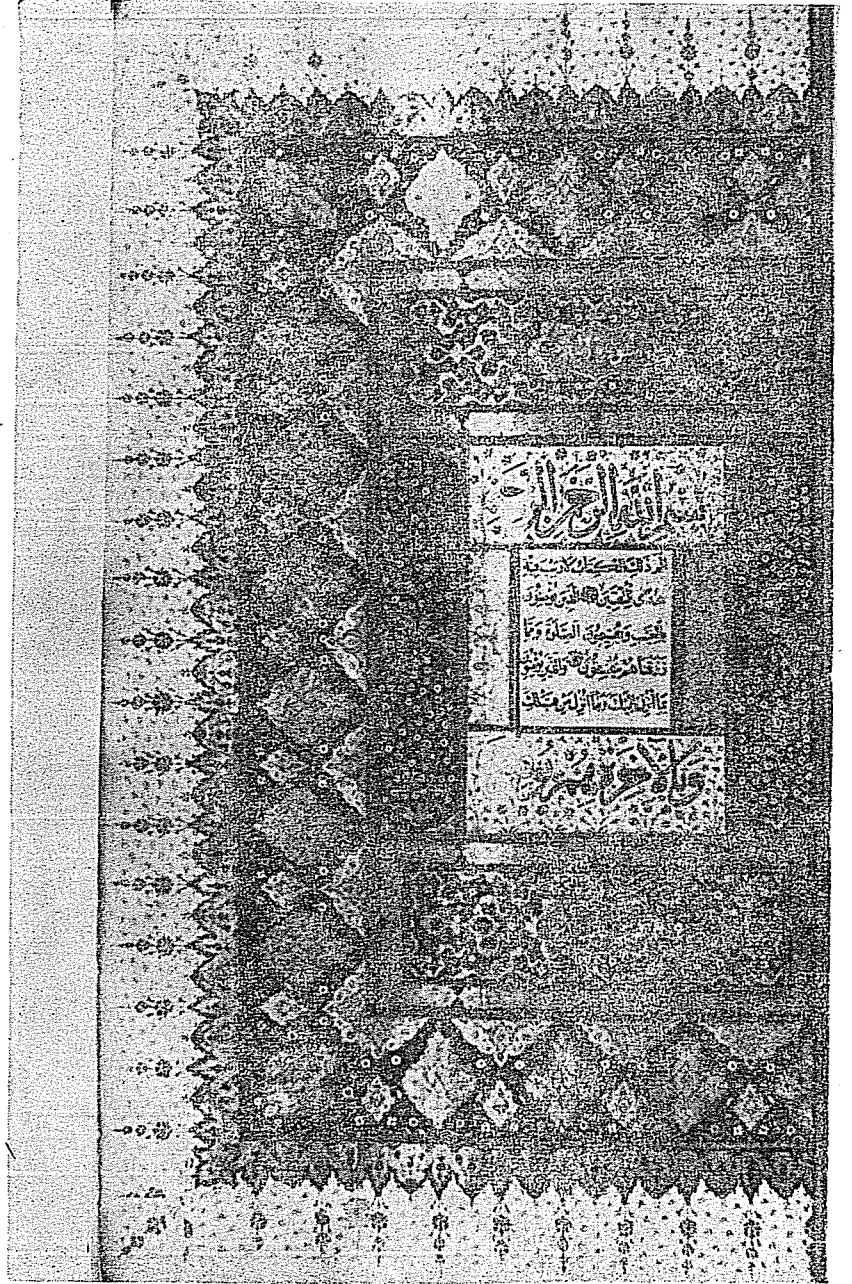 بسم الله الرحمن الر
الم ذلك الكتاب لا ريب فيه
هدى للمتقين الذين يؤمنون
بالغيب ويقيمون الصلوة ومما
رزقناهم ينفقون والذين يؤمنون
بما انزل اليك وما انزل من قبلك
وبالاخرة هم